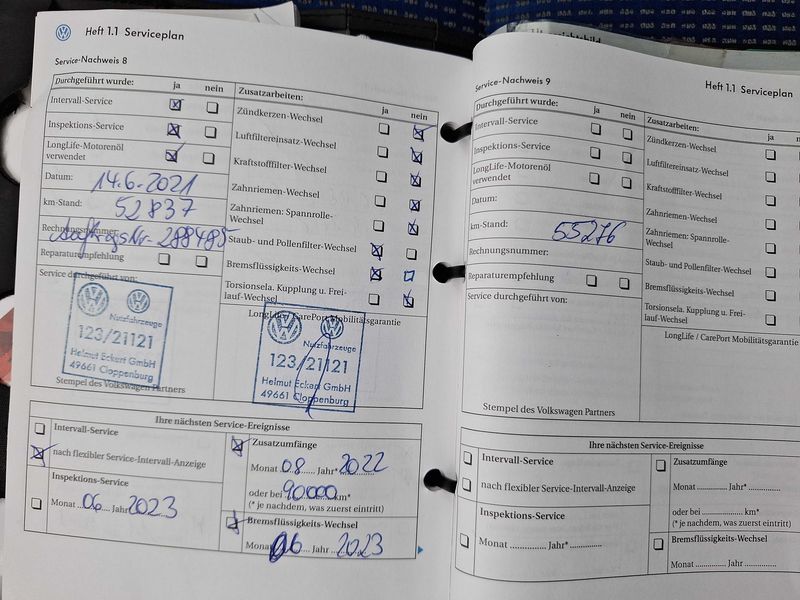 Heft 1.1 Serviceplan
Service-Nachweis 8
Durchgeführt wurde: ja nein
Intervall-Service
Inspektions-Service
LongLife-Motorenöl
verwendet
Datum: 14.6.2021
km-Stand: 52837
Rechnungsnummer:
AuftragsNr. 288485
Reparaturempfehlung
Service durchgeführt von:
Nutzfahrzeuge
123/21121
Helmut Eckert GmbH
49661 Cloppenburg
Stempel des Volkswagen Partners
Zusatzarbeiten: ja nein
Zündkerzen-Wechsel
Luftfiltereinsatz-Wechsel
Kraftstofffilter-Wechsel
Zahnriemen-Wechsel
Zahnriemen: Spannrolle-
Wechsel
Staub- und Pollenfilter-Wechsel
Bremsflüssigkeits-Wechsel
Torsionsela. Kupplung u. Frei-
lauf-Wechsel
LongLife / CarePort Mobilitätsgarantie
Nutzfahrzeuge
123/21121
Helmut Eckert GmbH
49661 Cloppenburg
Ihre nächsten Service-Ereignisse
Intervall-Service
nach flexibler Service-Intervall-Anzeige
Inspektions-Service
Monat 06 Jahr 2023
Zusatzumfänge
Monat 08 Jahr* 2022
oder bei 90000 km*
(* je nachdem, was zuerst eintritt)
Bremsflüssigkeits-Wechsel
Monat 06 Jahr 2023
Service-Nachweis 9
Heft 1.1 Serviceplan
Durchgeführt wurde: ja nein
Intervall-Service
Inspektions-Service
LongLife-Motorenöl
verwendet
Datum:
km-Stand: 55276
Rechnungsnummer:
Reparaturempfehlung
Service durchgeführt von:
Stempel des Volkswagen Partners
Zusatzarbeiten:
Zündkerzen-Wechsel
Luftfiltereinsatz-Wechsel
Kraftstofffilter-Wechsel
Zahnriemen-Wechsel
Zahnriemen: Spannrolle-
Wechsel
Staub- und Pollenfilter-Wechsel
Bremsflüssigkeits-Wechsel
Torsionsela. Kupplung u. Frei-
lauf-Wechsel
LongLife / CarePort Mobilitätsgarantie
Ihre nächsten Service-Ereignisse
Intervall-Service
nach flexibler Service-Intervall-Anzeige
Inspektions-Service
Monat ............... Jahr* ...............
Zusatzumfänge
Monat ............ Jahr* ............
oder bei ............... km*
(* je nachdem, was zuerst eintritt)
Bremsflüssigkeits-Wechsel
Monat ............ Jahr ............